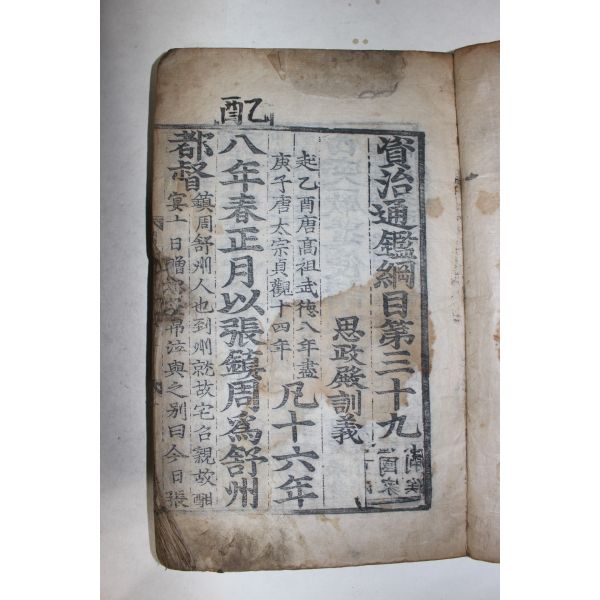 資治通鑑綱目第三十九
思政殿訓義
起乙酉唐髙祖武德八年盡
庚子唐太宗貞觀十四年
凡十六年
乙酉
八年春正月以張鎮周爲舒州
都督
鎮周舒州人也到州就故宅召親故酣
宴十日贈 泣與之别曰今日張